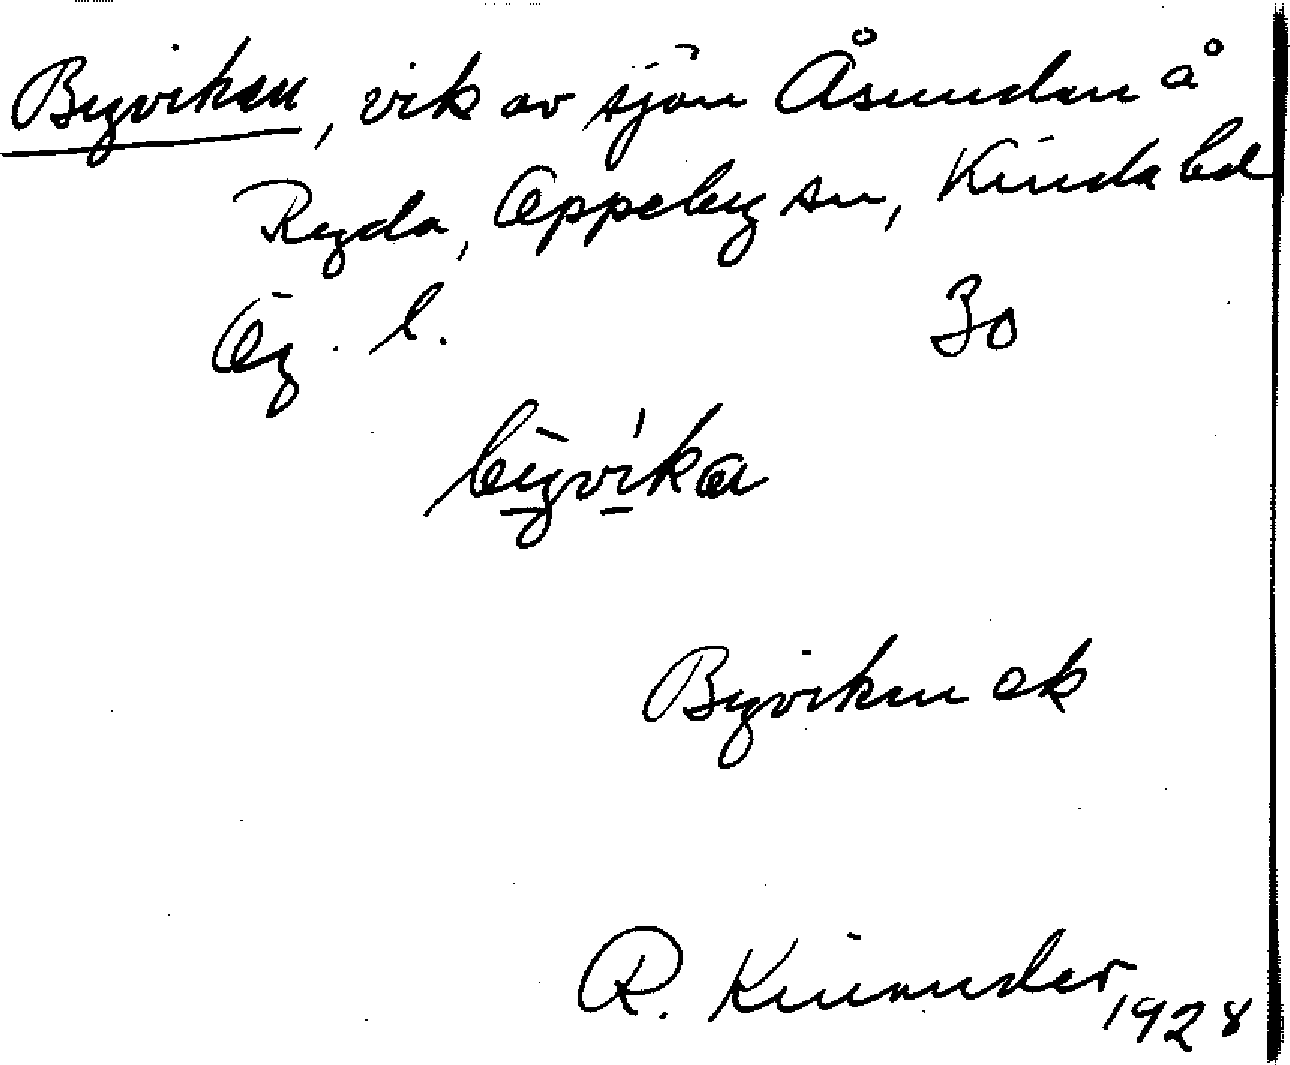 Byviken, vik av sjön Åsunden å
Ryda, Oppeby sn, Kinda hd
Ög. l. 30
bỳ̱ví̱ka
Byviken ek
R. Kinander 1928